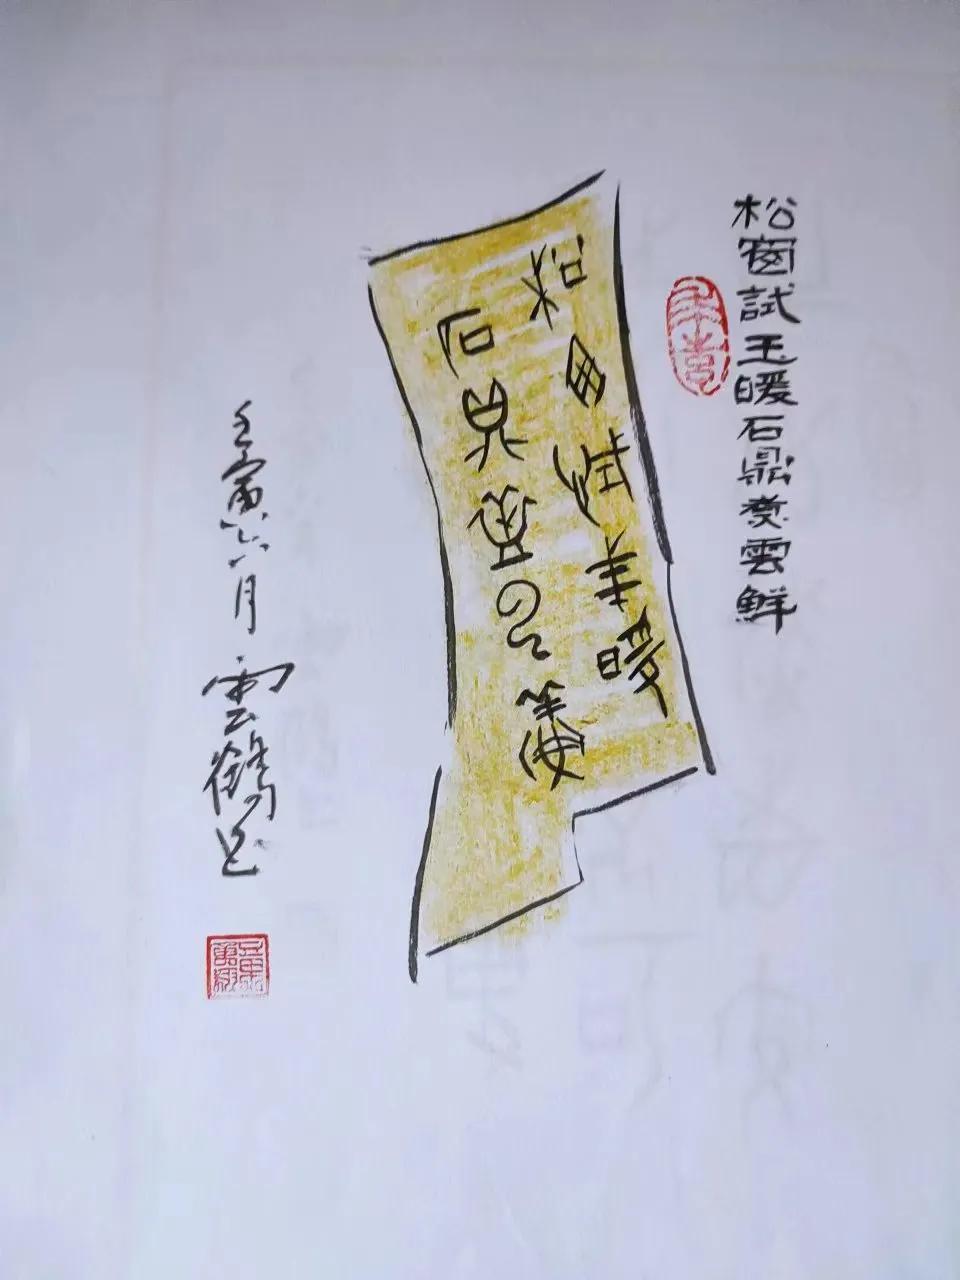 松窗試玉暖石鼎煮雲鮮
松窗試玉暖
石鼎煮雲鮮
壬寅六月雲鶴